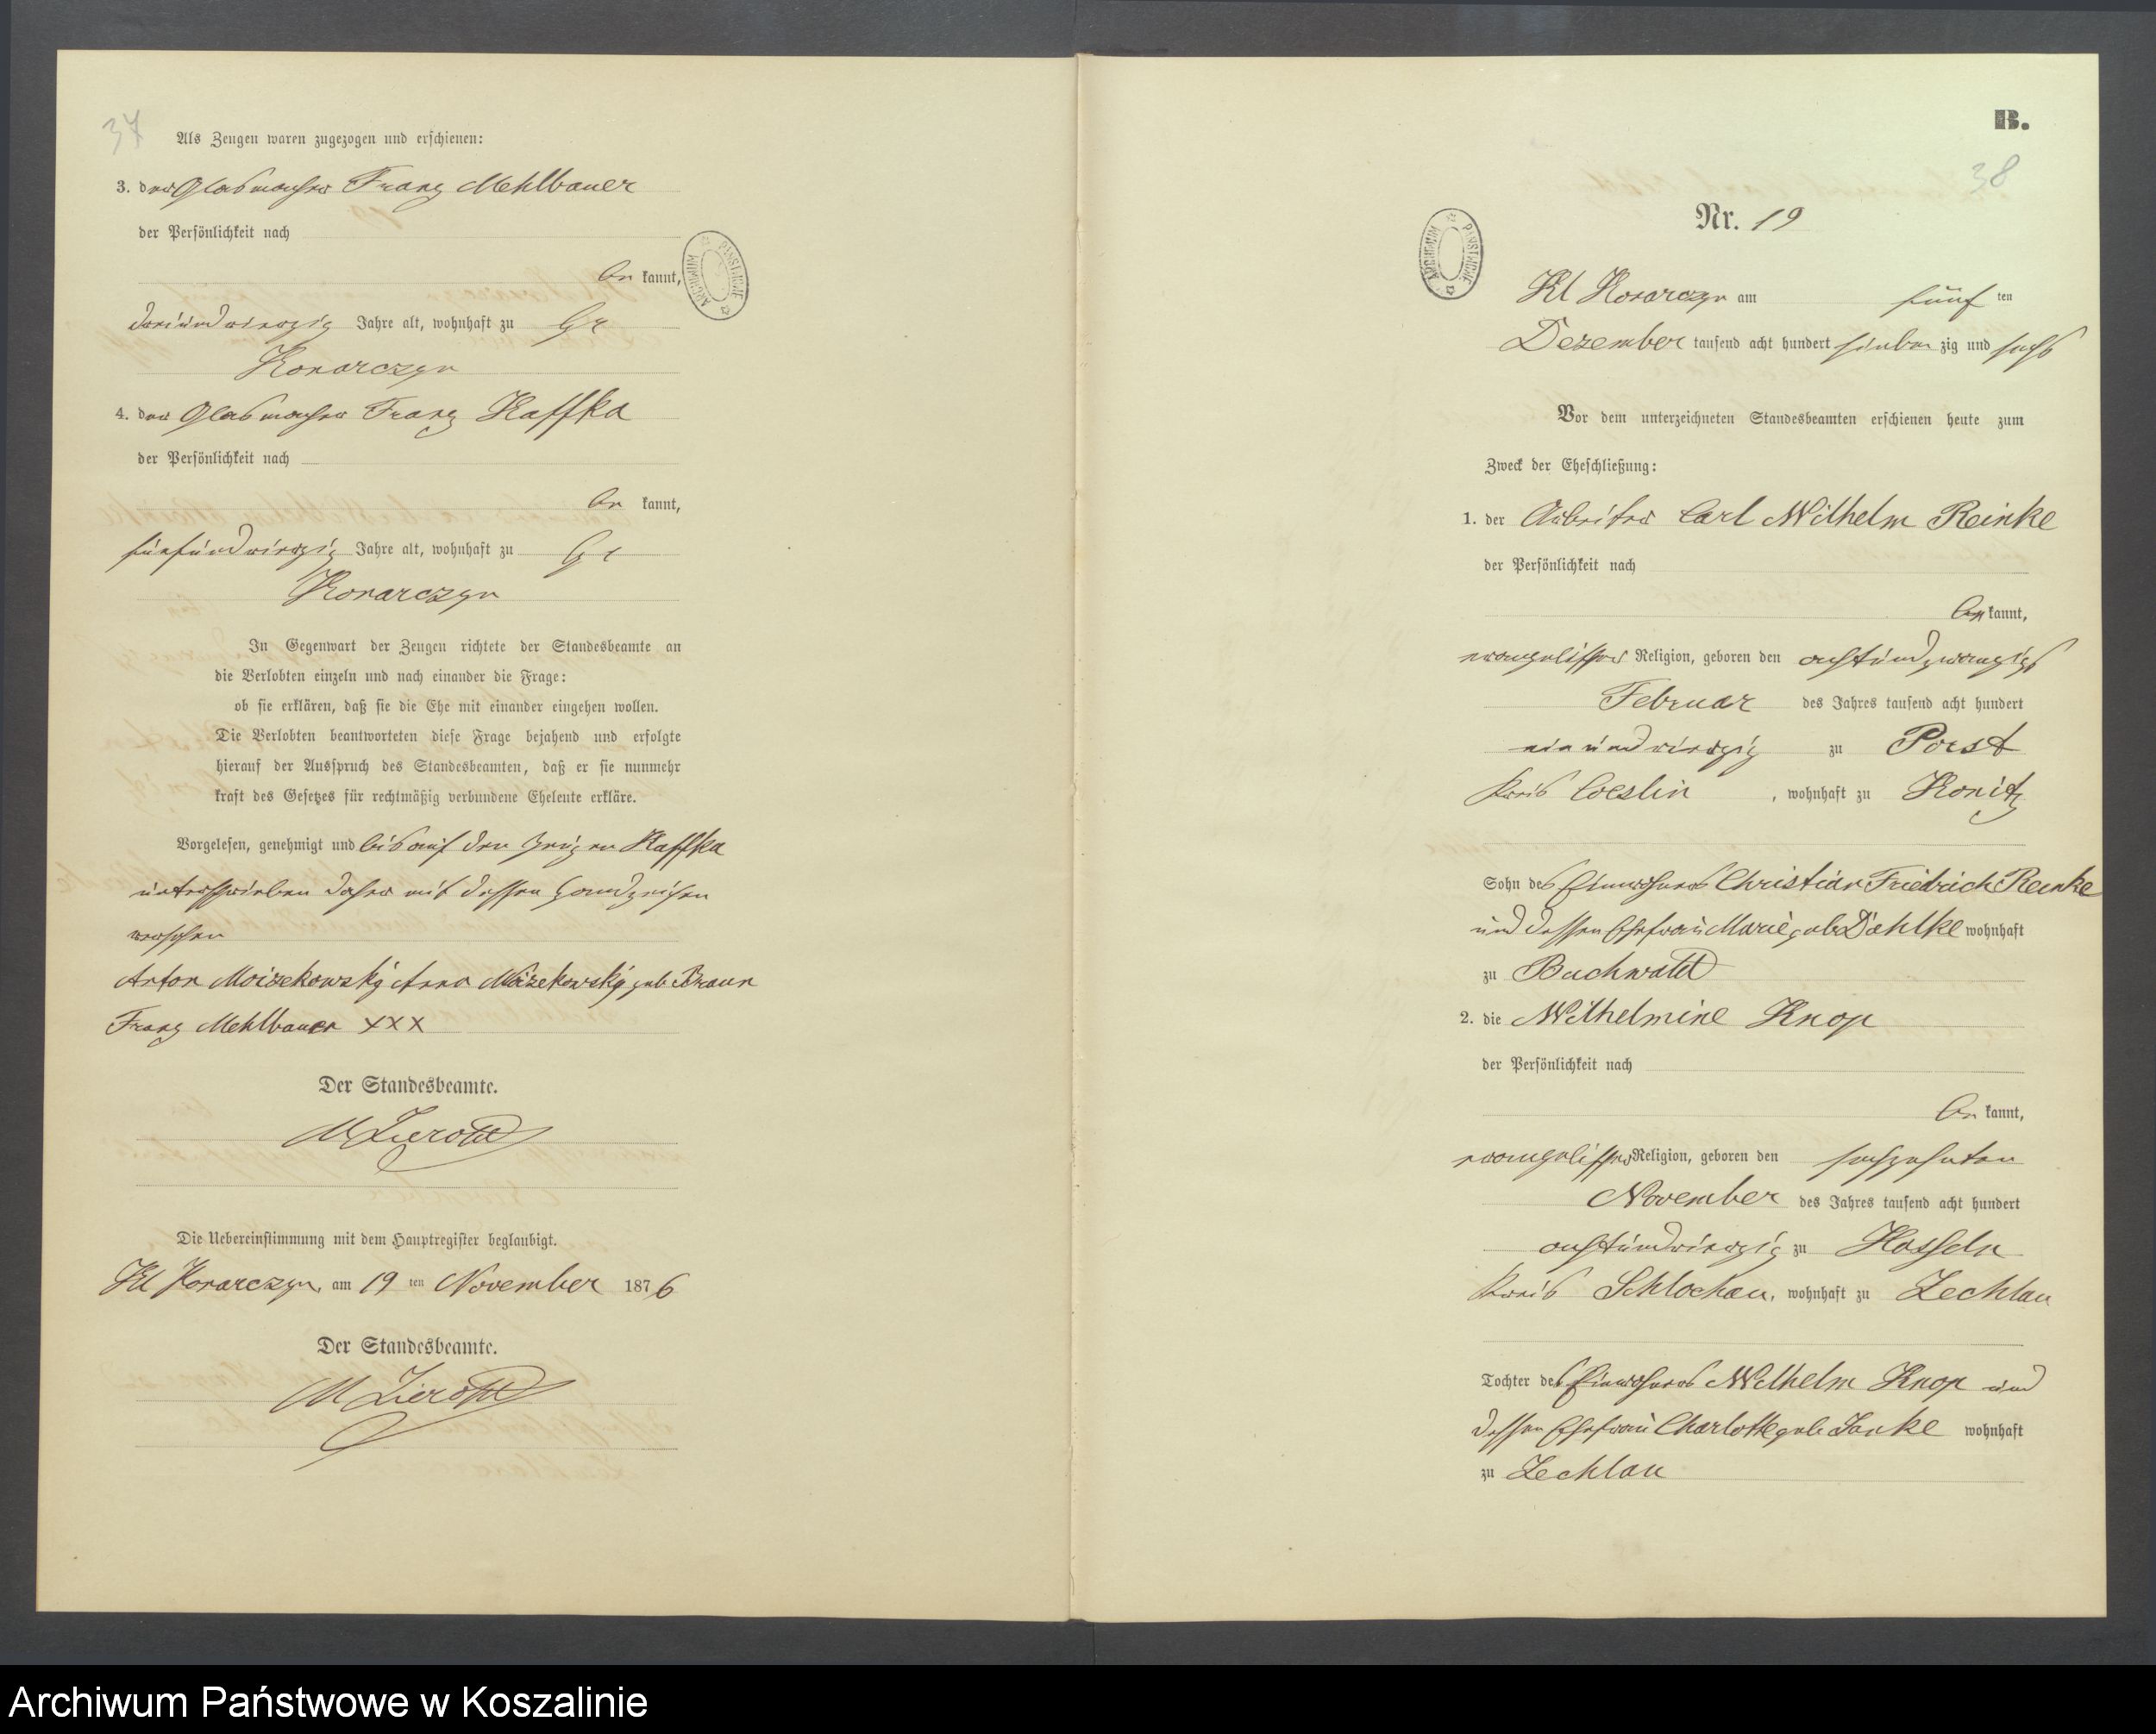 37
Als Zeugen waren zugezogen und erschienen:
3. der Glasmacher Franz Mehlbauer
der Persönlichkeit nach
be kannt,
dreiundvierzig Jahre alt, wohnhaft zu Gr
Konarczyn
4. der Glasmacher Franz Kaffka
der Persönlichkeit nach
be kannt,
fünfundvierzig Jahre alt, wohnhaft zu Gr
Konarczyn
In Gegenwart der Zeugen richtete der Standesbeamte an
die Verlobten einzeln und nach einander die Frage:
ob sie erklären, daß sie die Ehe mit einander eingehen wollen.
Die Verlobten beantworteten diese Frage bejahend und erfolgte
hierauf der Ausspruch des Standesbeamten, daß er sie nunmehr
kraft des Gesetzes für rechtmäßig verbundene Eheleute erkläre.
Vorgelesen, genehmigt und bis auf den Zeugen Kaffka
unterschrieben daher mit dessen Handzeichen
versehen
Anton Moizekowský Anna Moizekowský geb Braun
Franz Mehlbauer XXX
Der Standesbeamte.
Die Uebereinstimmung mit dem Hauptregister beglaubigt.
Kl Konarczyn, am 19 ten November 1876
Der Standesbeamte.
ARCHIWUM PAŃSTWOWE
B.
38
Nr. 19
ARCHIWUM PAŃSTWOWE
Kl Konarczyn am fünf ten
Dezember tausend acht hundert sieben zig und sechs
Vor dem unterzeichneten Standesbeamten erschienen heute zum
Zweck der Eheschließung:
1. der Arbeiter Carl Wilhelm Reinke
der Persönlichkeit nach
be kannt,
evangelischer Religion, geboren den achtundzwanzigs
Februar des Jahres tausend acht hundert
ein und vierzig zu Poest
Kreis Coeslin, wohnhaft zu Konitz
Sohn des Einwohners Christian Friedrich Reinke
und dessen Ehefrau Marie geb Dahlke wohnhaft
zu Buchwald
2. die Wilhelmine Knop
der Persönlichkeit nach
be kannt,
evangelischer Religion, geboren den sechzehnten
November des Jahres tausend acht hundert
achtundvierzig zu Hasseln
Kreis Schlochau, wohnhaft zu Zechlau
Tochter des Einwohners Wilhelm Knop und
dessen Ehefrau Charlotte geb Janke wohnhaft
zu Zechlau
Archiwum Państwowe w Koszalinie